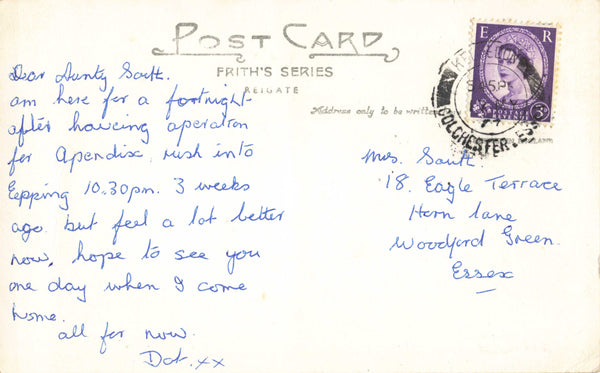 POST CARD
FRITH'S SERIES
REIGATE
Address only to be written
E R
3D
POSTAGE
COLCHESTER ESSEX
Dear Aunty
am here for a fortnight
after haveing operation
for Apendix, rush into
Epping 10.30pm. 3 weeks
ago but feel a lot better
now, hope to see you
one day when I come
home.
all for now.
Dot. xx
Mrs.
18. Eagle Terrace
Horn lane
Woodford Green.
Essex